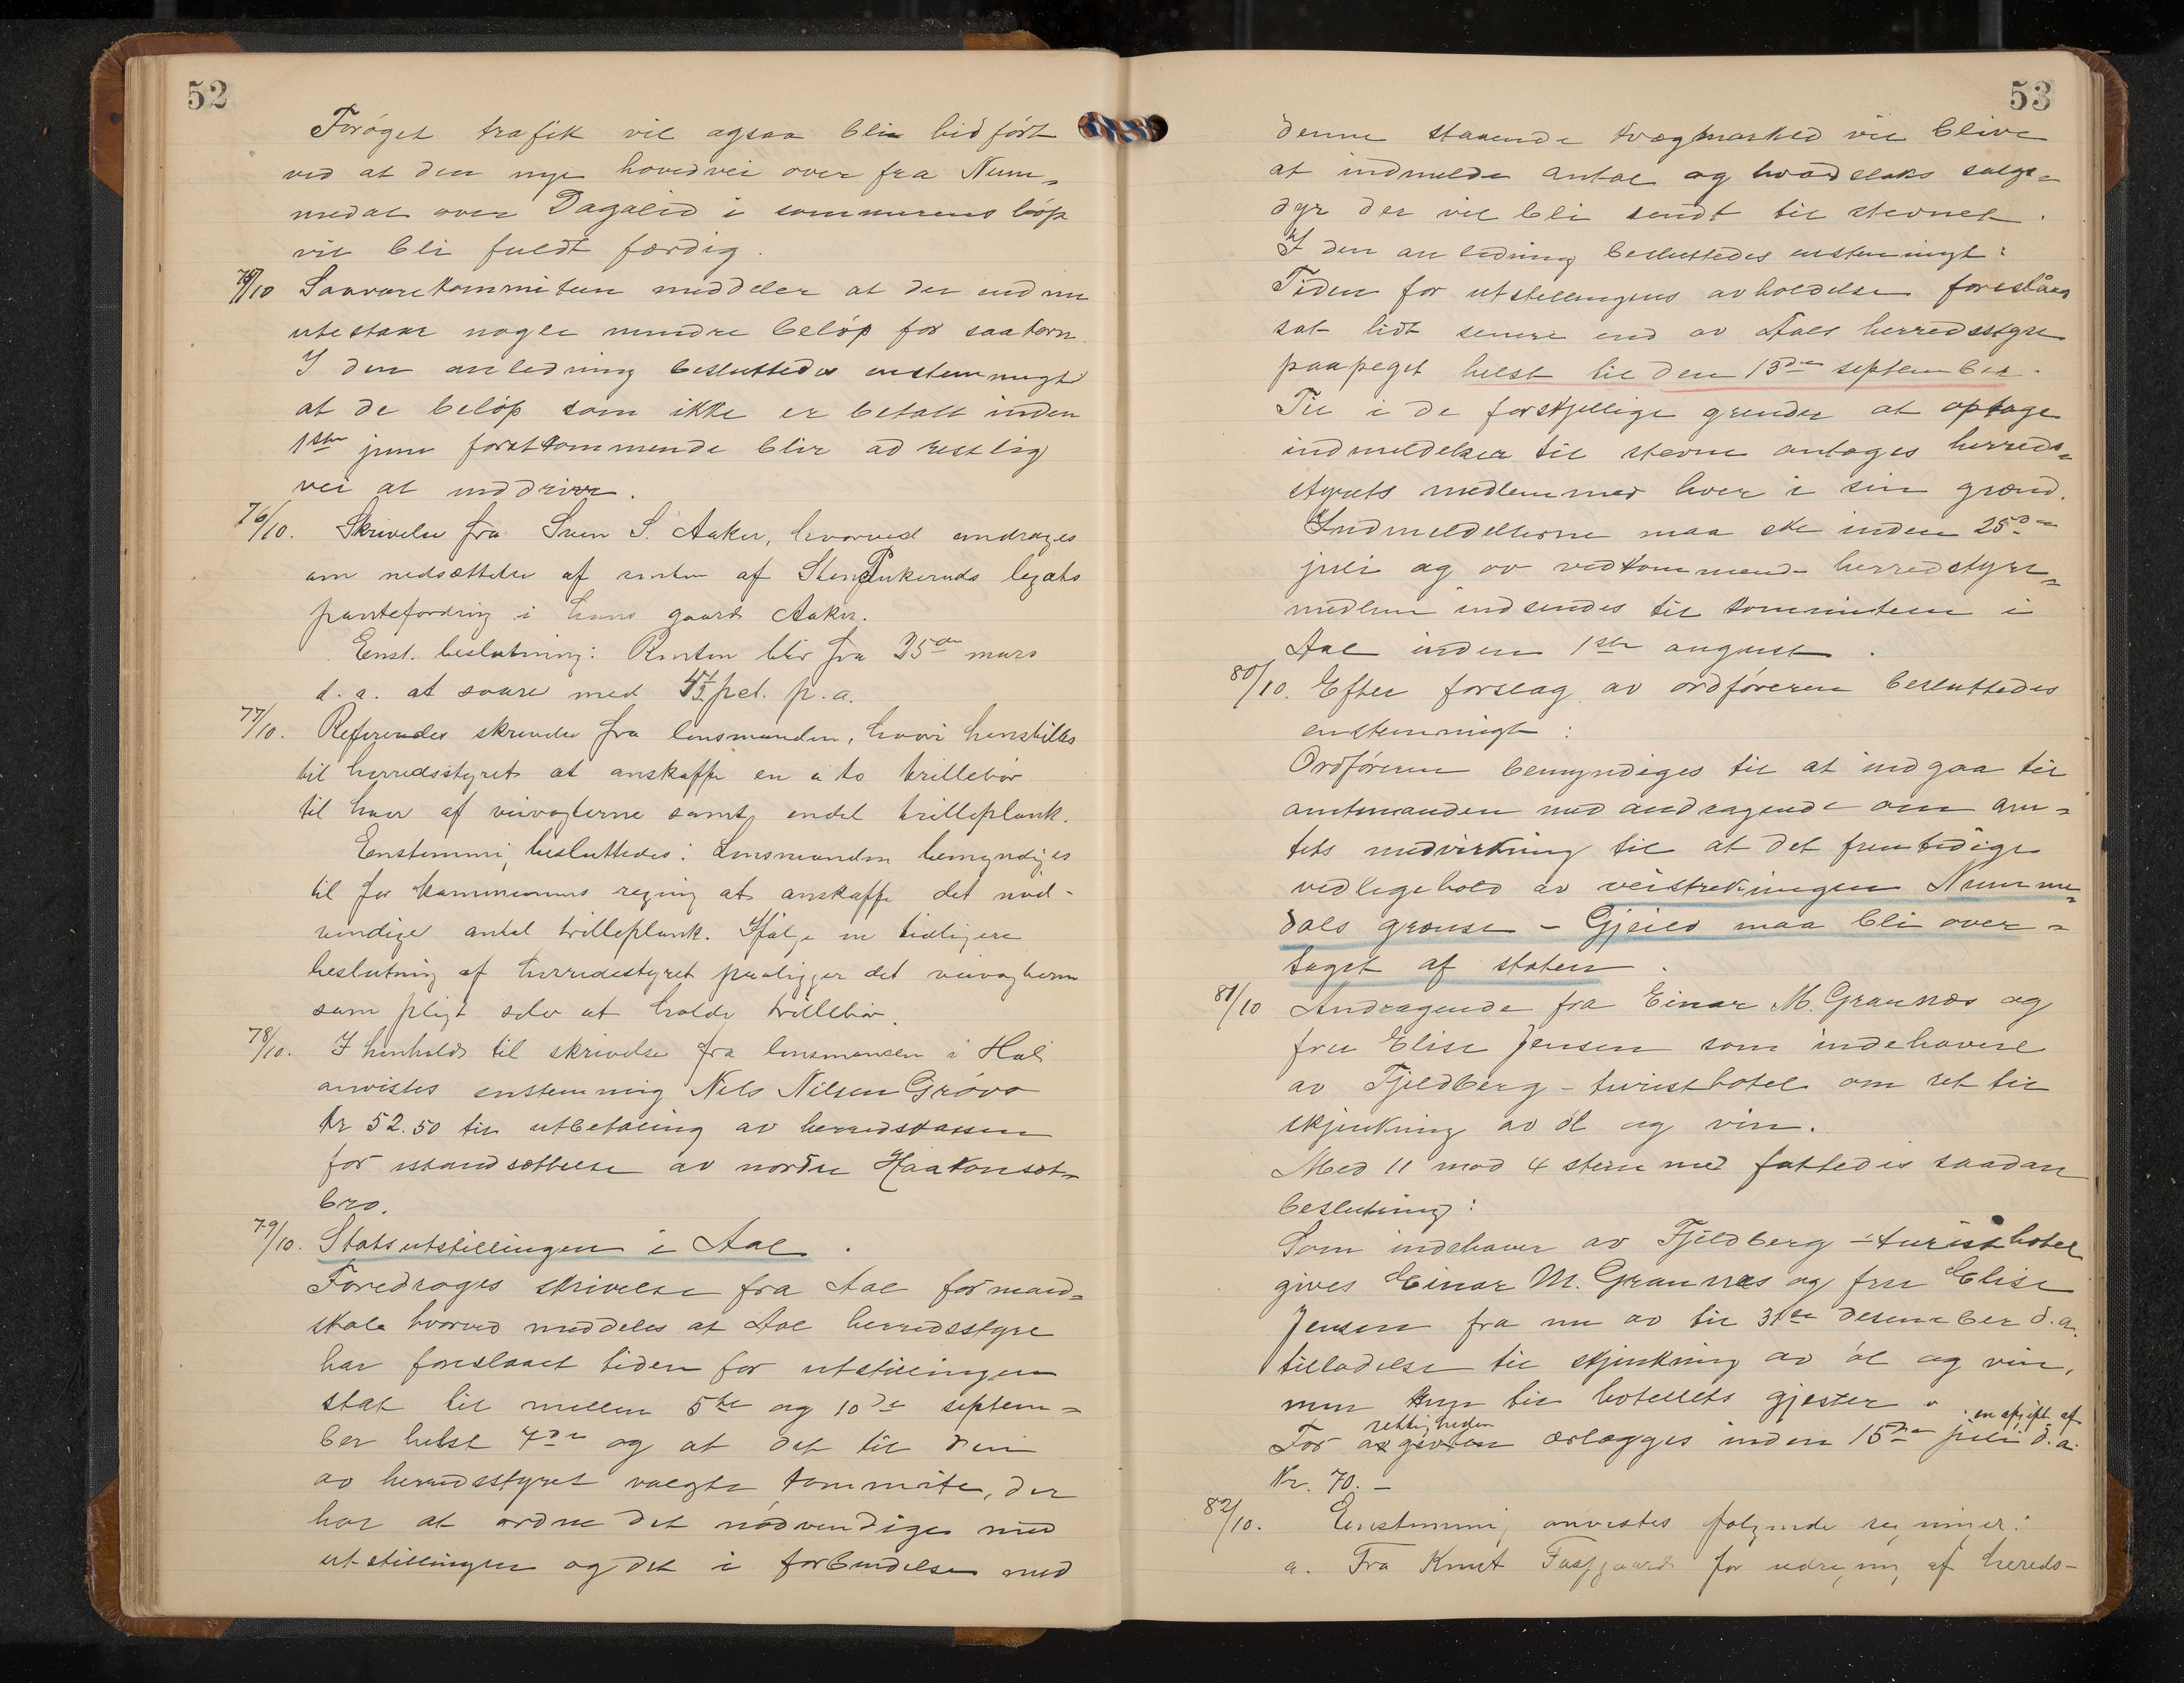 52
Forøget trafik vil ogsaa bli hidført
ved at den nye hovedvei over fra Num-
medal over Dagalid i sommerens løp
vil bli fuldt færdig.
75/10 Saavarekommiteen meddeler at der endnu
utestaar nogle mindre beløp for saakorn.
I den anledning besluttedes enstemmigt
at de beløp som ikke er betalt inden
1ste juni førstkommende blir ad restlig
vei at inddrive.
76/10. Skrivelse fra Sven S. Aaker, hvorved andrages
om nedsættelse af renten af Sten Pukeruds legats
pantefordring i hans gaard Aaker.
Enst. beslutning: Renten blir fra 25de mars
d. a. at svare med 4 1/2 pct. p. a.
77/10. Refereredes skrivelse fra lensmanden, hvori henstilles
til herredsstyret at anskaffe en a to trillebør
til hver af veivogterne samt endel trilleplank.
Enstemmig besluttedes: Lensmanden bemyndiges
til for kommunens regning at anskaffe det nød-
vendige antal trilleplank. Ifølge en tidligere
beslutning af herredsstyret paaligger det veivogterne
som pligt selv at holde trillebør.
78/10. I henhold til skrivelse fra lensmanden i Hol
anvistes enstemmig Nils Nilsen Grøvo
kr 52.50 til utbetaling av herredskassen
for istandsættelse av nordre Haakonsæt-
bro.
79/10. Statsutstillingen i Aal.
Foredroges skrivelse fra Aal formand-
skab hvorved meddeles at Aal herredsstyre
har foreslaaet tiden for utstillingen
sat til mellem 5te og 10de septem-
ber helst 7de og at det til den
av herredsstyret valgte kommite, der
har at ordne det nødvendige med
utstillingen og det i forbindelse med
53
denne staaende kvægmarked vil blive
at indmelde antal og hvadslaks salgs-
dyr der vil bli sendt til stevnet.
I den anledning besluttedes enstemmigt:
Tiden for utstillingens avholdelse foreslåes
sat lidt senere end av Aals herredsstyre
paapeget helst til den 13de september.
Til i de forskjellige grender at optage
indmeldelser til stevne antages herreds-
styrets medlemmer hver i sin grend.
Indmeldelserne maa ske inden 25de
juli og av vedkommende herredstyre-
medlem indsendes til kommiteen i
Aal inden 1ste august.
80/10. Efter forslag av ordføreren besluttedes
enstemmigt:
Ordføreren bemyndiges til at indgaa til
amtmanden med andragende om am-
tets medvirkning til at det fremtidige
vedligehold av veistrekningen Numme-
dals grænse - Gjeilo maa bli over-
taget af staten.
81/10 Andragende fra Einar M. Graunæs og
fru Elise Jensen som indehavere
av Fjeldberg-turisthotel om ret til
skjenkning av øl og vin.
Med 11 mod 4 stemmer fattedes saadan
beslutning:
Som indehaver av Fjeldberg-turisthotel
gives Einar M. Graunæs og fru Elise
Jensen fra nu av til 31te desember d. a.
tilladelse til skjenkning av øl og vin,
men kun til hotellets gjester.
rettigheden en afgift af
For avgiven erlægges inden 15de juli d. a.
Kr. 70.-
82/10. Enstemmig anvistes følgende regninger:
a. Fra Knut for af hereds-